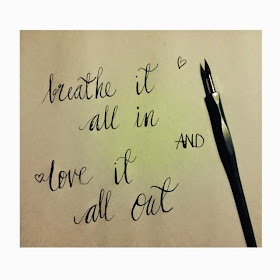 breathe it
all in
AND
love it
all out